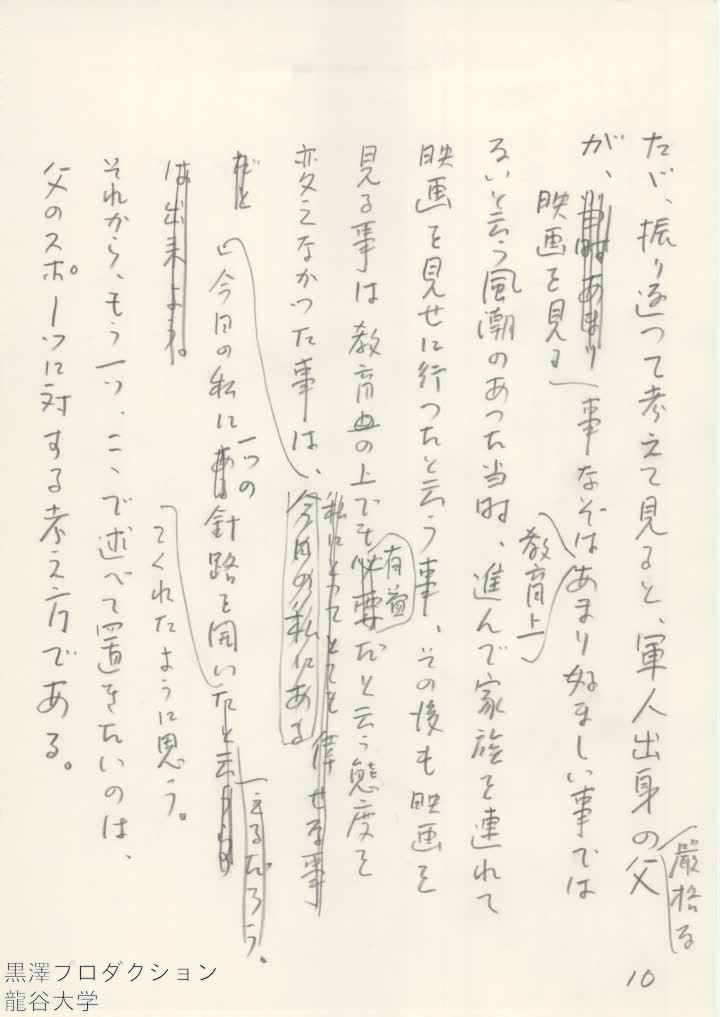 たゞ、振り返つて考えて見ると、軍人出身の父
厳格な
が、当時あまり事なぞはあまり好ましい事では
映画を見る
教育上
るいと云う風潮のあつた当時、進んで家族を連れて
映画を見せに行つたと云う事、その後も映画を
見る事は教育の上でも必要だと云う態度を
有益
変えなかつた事は、今日の私にある
私にとつてとても倖せな事
だと
今日の私にある針路を開いたと云
一つの
云えるだろう。
は出来よう。
てくれたように思う。
それから、もう一つ、こゝで述べて置きたいのは、
父のスポーツに対する考え方である。
10
黒澤プロダクション
龍谷大学